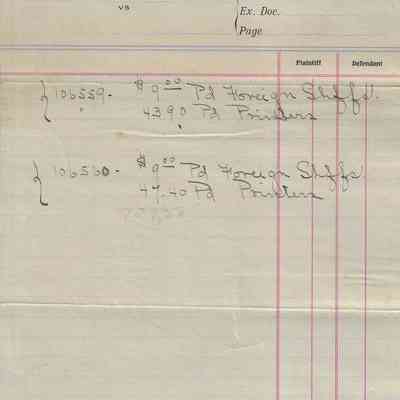 vs
Ex. Doc.
Page
Plaintiff Defendant
106559. $9.00 Pd Foreign Shffs'.
43.90 Pd Printers
106560. $9.00 Pd Foreign Shffs'
47.40 Pd Printers